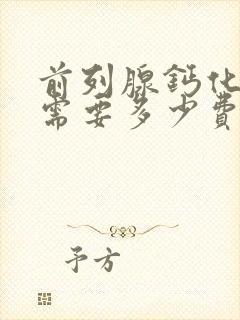 前列腺钙化
需要多少费
予方